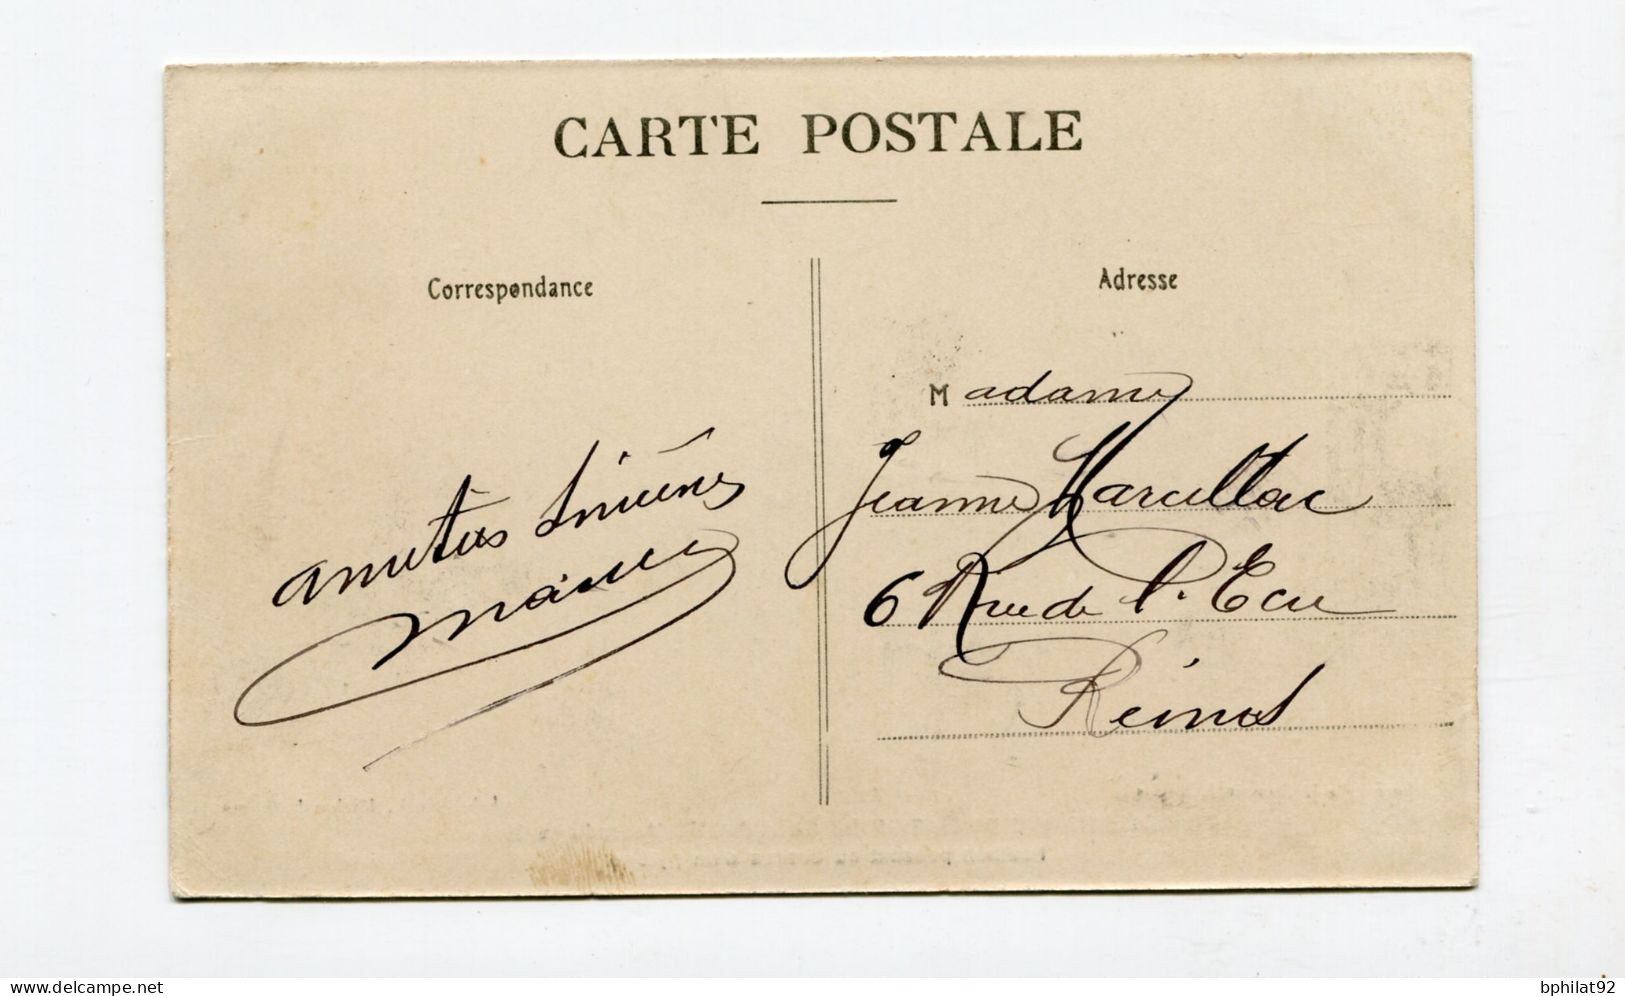 CARTE POSTALE
Correspondance
Adresse
Madame
Jeanne Marcillac
6 Rue de l'Ecu
Reims
amitiés sincères
www.delcampe.net
bphilat92